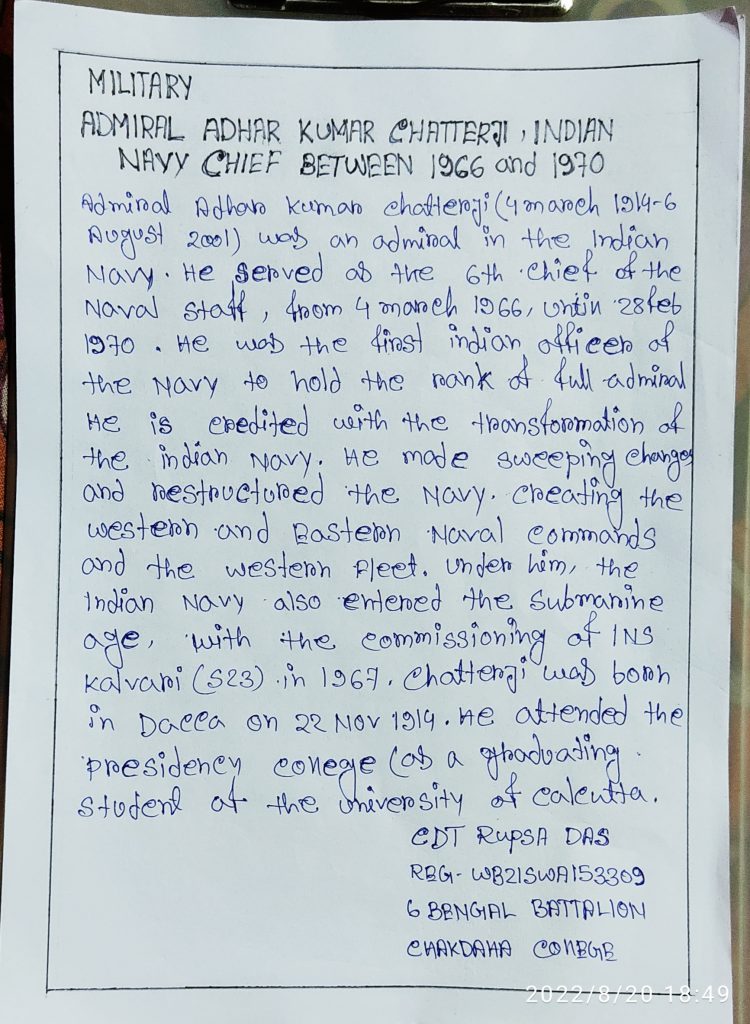 MILITARY
ADMIRAL ADHAR KUMAR CHATTERJI, INDIAN
NAVY CHIEF BETWEEN 1966 and 1970
Admiral Adhar Kumar chatterji (4 march 1914-6
August 2001) was an admiral in the Indian
Navy. He served as the 6th chief of the
Naval staff, from 4 march 1966, untin 28 feb
1970. He was the first indian officer of
the Navy to hold the rank of full admiral
He is credited with the transformation of
the indian Navy. He made sweeping changes
and restructured the Navy. creating the
western and Eastern Naval commands
and the western Fleet. Under him, the
Indian Navy also entered the submarine
age, with the commissioning of INS
Kalvari (S23) in 1967. Chatterji was born
in Dacca on 22 Nov 1914. He attended the
presidency college (as a graduating
student at the university of calcutta.
CDT RUPSA DAS
REG- WB21SWA153309
6 BENGAL BATTALION
CHAKDAHA COllEGE
2022/8/20 18:49